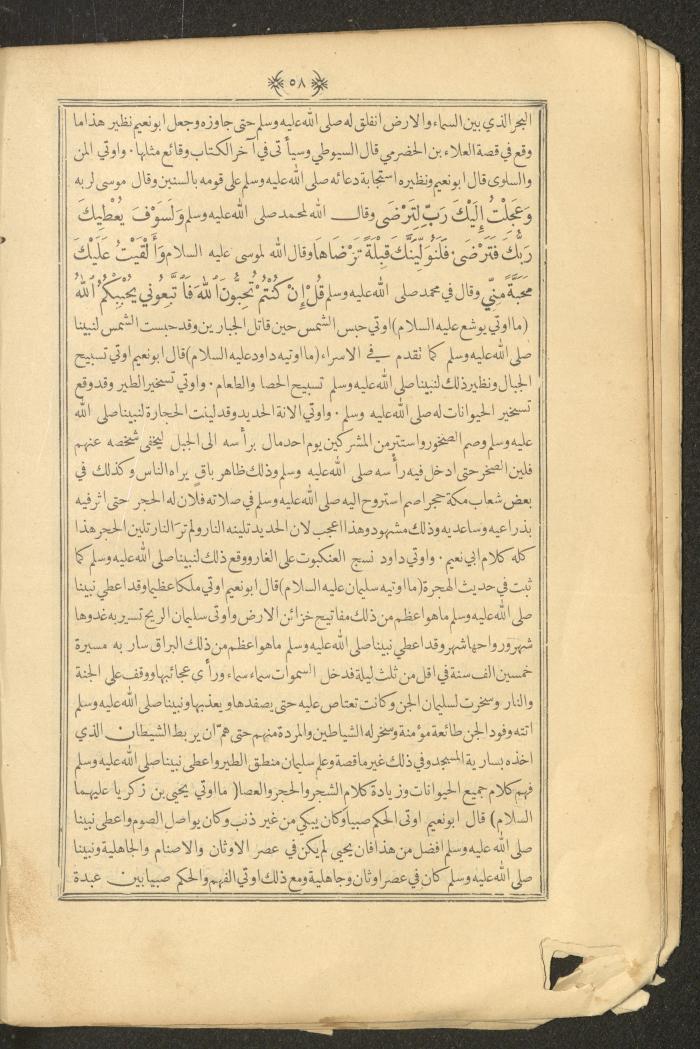 ٥٨
البحر الذي بين السماء والارض انفلق له صلى الله عليه وسلم حتى جاوزه وجعل ابونعيم نظير هذا ما
وقع في قصة العلاء بن الحضرمي قال السيوطي وسيأتى في آخر الكتاب وقائع مثلها ٠ واوتي المن
والسلوى قال ابونعيم ونظيره استجابة دعائه صلى الله عليه وسلم على قومه بالسنين وقال موسى لربه
وَعَجِلْتُ إِلَيْكَ رَبِّ لِتَرْضَى وقال الله لمحمد صلى الله عليه وسلم وَلَسَوْفَ يُعْطِيكَ
رَبُّكَ فَتَرْضَى ٠ فَلَنُوَلِّيَنَّكَ قِبْلَةً تَرْضَاهَا وقال الله لموسى عليه السلام وَأَلْقَيْتُ عَلَيْكَ
مَحَبَّةً مِنِّي وقال في محمد صلى الله عليه وسلم قُلْ إِنْ كُنْتُمْ تُحِبُّونَ ٱللهَ فَٱتَّبِعُونِي يُحْبِبْكُمُ ٱللهُ
(ما اوتي يوشع عليه السلام) اوتي حبس الشمس حين قاتل الجبارين وقد حبست الشمس لنبينا
صلى الله عليه وسلم كما تقدم في الاسراء (ما اوتيه داود عليه السلام) قال ابونعيم اوتي تسبيح
الجبال ونظير ذلك لنبينا صلى الله عليه وسلم تسبيح الحصا والطعام ٠ واوتي تسخير الطير وقد وقع
تسخير الحيوانات له صلى الله عليه وسلم ٠ واوتي الانة الحديد وقد لينت الحجارة لنبينا صلى الله
عليه وسلم وصم الصخور واستتر من المشركين يوم احد مال برأسه الى الجبل ليخفى شخصه عنهم
فلين الصخر حتى ادخل فيه رأسه صلى الله عليه وسلم وذلك ظاهر باق يراه الناس وكذلك في
بعض شعاب مكة حجر اصم استروح اليه صلى الله عليه وسلم في صلاته فلان له الحجر حتى اثر فيه
بذراعيه وساعديه وذلك مشهود وهذا اعجب لان الحديد تلينه النار ولم تر النار تلين الحجر هذا
كله كلام ابي نعيم ٠ واوتي داود نسج العنكبوت على الغار ووقع ذلك لنبينا صلى الله عليه وسلم كما
ثبت في حديث الهجرة (ما اوتيه سليمان عليه السلام) قال ابونعيم اوتي ملكا عظيما وقد اعطي نبينا
صلى الله عليه وسلم ما هو اعظم من ذلك مفاتيح خزائن الارض واوتى سليمان الريح تسير به غدوها
شهر ورواحها شهر وقد اعطي نبينا صلى الله عليه وسلم ما هو اعظم من ذلك البراق سار به مسيرة
خمسين الف سنة في اقل من ثلث ليلة فدخل السموات سماء سماء ورأى عجائبها ووقف على الجنة
والنار وسخرت لسليمان الجن وكانت تعتاص عليه حتى يصفدها ويعذبها ونبينا صلى الله عليه وسلم
اتته وفود الجن طائعة مؤمنة وسخر له الشياطين والمردة منهم حتى همّ ان يربط الشيطان الذي
اخذه بسارية المسجد وفي ذلك غير ما قصة وعلم سليمان منطق الطير واعطي نبينا صلى الله عليه وسلم
فهم كلام جميع الحيوانات وزيادة كلام الشجر والحجر والعصا (ما اوتي يحيى بن زكريا عليهما
السلام) قال ابونعيم اوتى الحكم صبيا وكان يبكي من غير ذنب وكان يواصل الصوم واعطى نبينا
صلى الله عليه وسلم افضل من هذا فان يحيى لم يكن في عصر الاوثان والاصنام والجاهلية ونبينا
صلى الله عليه وسلم كان في عصر اوثان وجاهلية ومع ذلك اوتي الفهم والحكم صبيا بين عبدة